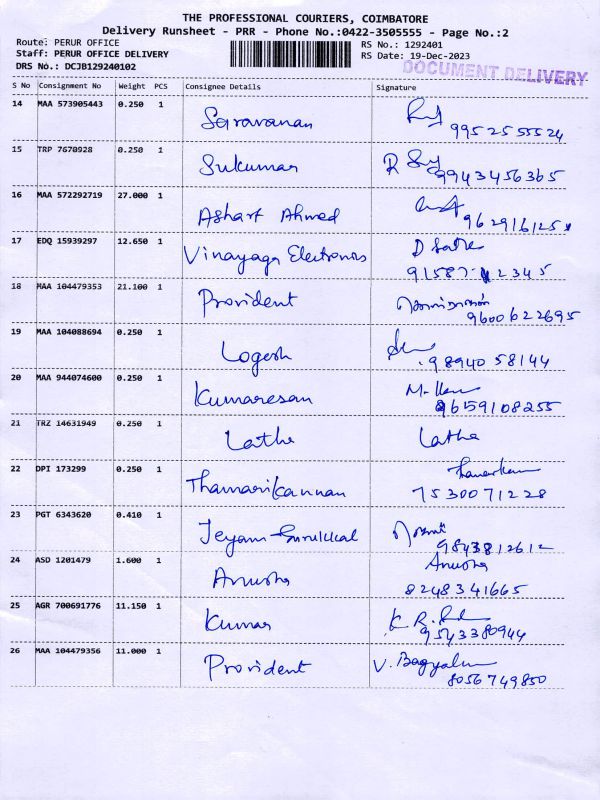 THE PROFESSIONAL COURIERS, COIMBATORE
Delivery Runsheet - PRR - Phone No.:0422-3505555 - Page No.:2
Route: PERUR OFFICE RS No.: 1292401
Staff: PERUR OFFICE DELIVERY RS Date: 19-Dec-2023
DRS No.: DCJB129240102 DOCUMENT DELIVERY
S No Consignment No Weight PCS Consignee Details Signature
14 MAA 573905443 0.250 1 Saravanan
9952555524
15 TRP 7670928 0.250 1 Sukumar
9943456365
16 MAA 572292719 27.000 1 Ashraf Ahmed
962916125
17 EDQ 15939297 12.650 1 Vinayaga Electronics
91587 12345
18 MAA 104479353 21.100 1 Provident
9600622695
19 MAA 104088694 0.250 1 Logesh
98940 58144
20 MAA 944074600 0.250 1 Kumaresan
9659108255
21 TRZ 14631949 0.250 1 Latha Latha
22 DPI 173299 0.250 1 Thamarikannan
7530071228
23 PGT 6343620 0.410 1 Jeyam
9843812612
24 ASD 1201479 1.600 1 Anusha Anusha
8248341665
25 AGR 700691776 11.150 1 Kumar K. R.
9543380944
26 MAA 104479356 11.000 1 Provident V. Bagyalm
8056749850